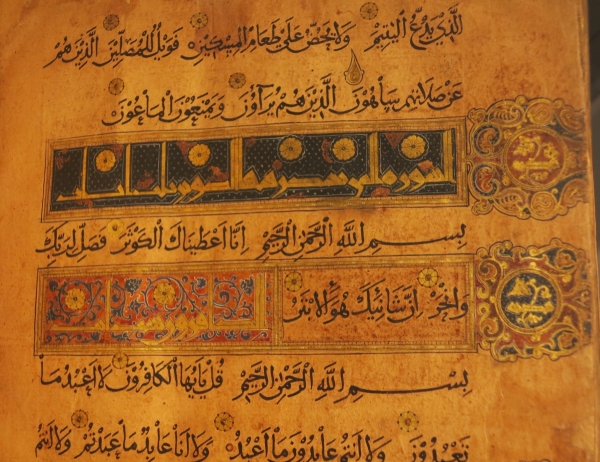 الَّذِي يَدُعُّ الْيَتِيمَ وَلَا يَحُضُّ عَلَى طَعَامِ الْمِسْكِينِ فَوَيْلٌ لِلْمُصَلِّينَ الَّذِينَ هُمْ
عَنْ صَلَاتِهِمْ سَاهُونَ الَّذِينَ هُمْ يُرَاؤُنَ وَيَمْنَعُونَ الْمَاعُونَ
سورة
بِسْمِ اللهِ الرَّحْمٰنِ الرَّحِيمِ اِنَّا اَعْطَيْنَاكَ الْكَوْثَرَ فَصَلِّ لِرَبِّكَ
وَانْحَرْ اِنَّ شَانِئَكَ هُوَ الْاَبْتَرُ
بِسْمِ اللهِ الرَّحْمٰنِ الرَّحِيمِ قُلْ يَا اَيُّهَا الْكَافِرُونَ لَا اَعْبُدُ مَا
تَعْبُدُونَ وَلَا اَنْتُمْ عَابِدُونَ مَا اَعْبُدُ وَلَا اَنَا عَابِدٌ مَا عَبَدْتُمْ وَلَا اَنْتُمْ